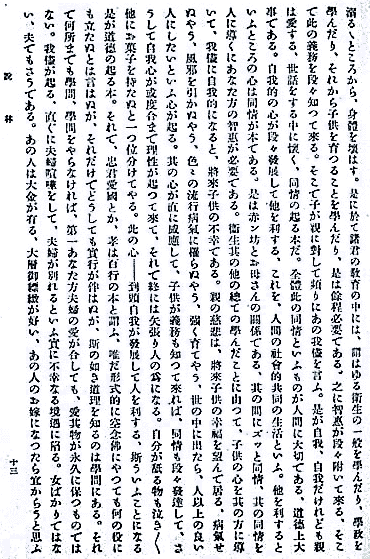 溺る、ところから、身體を壊はす。是に於て諸君の教育の中には、謂はゆる衛生の一般を學んだり、學政を
學んだり、それから子供を育つることを學んだり、是は餘程必要である。之に智惠が段々附いて來る、そこ
て此の義務を段々知つて來る。そこで子が親に對して頻りにあの我儘を言ふ。是が自我、自我だけれども親
は愛する、世話をする中に懐く、同情の起る本だ。全體此の同情といふものが人間に大切である、道德上大
事である。自我的の心が段々發展して他を利する、これを、人間の社會的共同の生活といふ。他を利すると
いふところの心は同情が本である。是は赤ン坊とお母さんの關係である、其の間にズッと同情、其の同情
人に導くにあなた方の智惠が必要である。衛生其の他の總ての學んだことに由つて、子供の心を其の方に導
いて、我儘に自我的になると、將來子供の不幸である。親の慈悲は、將來子供の幸福を望んで居る、病氣せ
ぬやう、風邪を引かぬやう、色々の流行病氣に罹らぬやう、強く育てやう、世の中に出たら、人以上の良い
人にしたいといふ心が起る。其の心が直に感應して、子供が義務も知つて來れば、同情も段々發達して、さ
うして自我心が或度合まで理性が起つて來て、それで終には矢張り人の爲になる。自分が舐る物も泣き〱
他にお菓子を持たぬと一つ位分けてやる。此の心――到頭自我が發展して人を利する、斯ういふことになる
是が道德の起る本。それで、忠君愛國とか、孝は百行の本と謂ふ、唯だ形式的に空念佛にやつても何の役に
も立たぬとは言はぬが、それだけでどうしても實行が伴はぬが、斯の如き道理を知るのは學問にある。それ
で何所までも學問、學問をやらなければ、第一あなた方夫婦の愛が合しても、愛其物が永久に保つものでは
ない。我儘が起る、直ぐに夫婦喧嘩をして、夫婦が別れるといふ實に不幸なる境遇に陷る。女ばかりではな
い、夫でもさうである。あの人は大金が有る、大層御標緻が好い、あの人のお嫁になつたら宜からうと思ふ
説林
十三